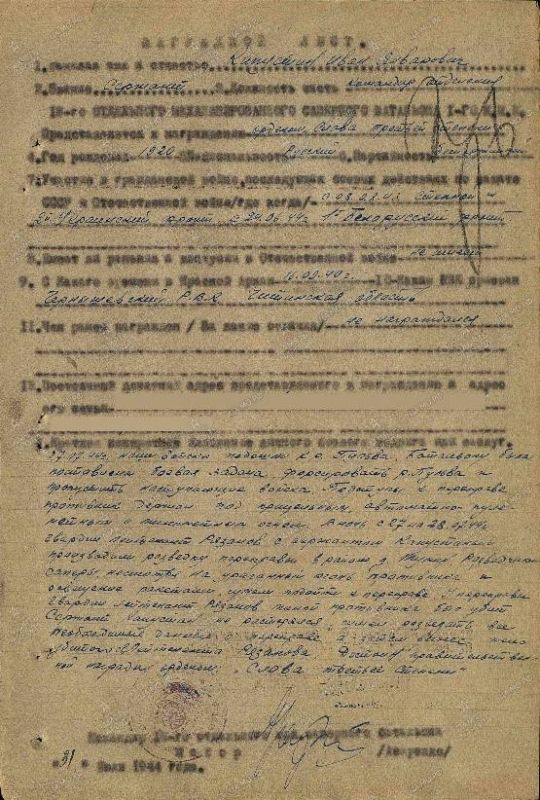 НАГРАДНОЙ ЛИСТ.
1. Фамилия имя и отчество Капустин Иван
2. Звание Сержант 3. Должность часть командир отделения
18-го ОТДЕЛЬНОГО САПЕРНОГО БАТАЛЬОНА
Представляется к награждению орденом Слава третьей степени
4. Год рождения 1920 5. Национальность Русский 6. Партийность
7. Участие в гражданской войне, последующих боевых действиях по защите
СССР и Отечественной войне /где когда/ с 08.43 Степной и
Украинский фронт, с 24.06.44г. 1й Белорусский фронт
8. Имеет ли ранения и контузии в Отечественной войне не имеет
9. С какого времени в Красной Армии 16.09.40г. 10. Каким РВК призван
Чернышевский РВК Читинская область
11. Чем ранее награжден /за какие отличия/ не награждался
12. Постоянный домашний адрес представляемого к награждению и адрес
его семьи
1. Краткое конкретное изложение личного боевого подвига или заслуг.
27.07.44г. наши войска подошли к р. Батальону была
поставлена боевая задача форсировать р. и
пропустить наступающие войска. Подступы к переправе
противник держал под прицельным автоматно-пуле-
метным и минометным огнем. В ночь с 27 на 28.07.44г.
гвардии лейтенант Рязанов с сержантом Капустиным
производили разведку переправы в районе д. Разведчики
саперы, несмотря на ураганный огонь противника и
освещение ракетами, сумели подойти к переправе. У переправы
гвардии лейтенант Рязанов миной противника был убит
Сержант Капустин не растерялся, сумел разведать все
необходимые данные о переправе а затем вынес тело
убитого лейтенанта Рязанова Достоин правительствен-
ной награды орденом "Слава третьей степени"
Командир 18-го отдельного сапёрного батальона
Майор /Андреенко/
"31" Июля 1944 года.